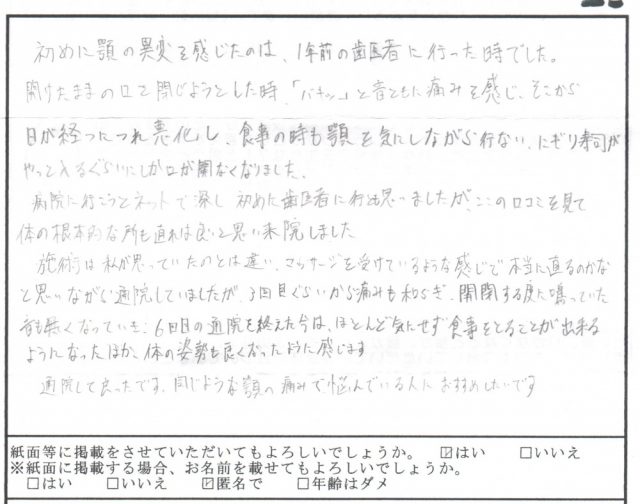 初めに顎の異変を感じたのは、1年前の歯医者に行った時でした。
開けたままの口を閉じようとした時、「バキッ」と音ともに痛みを感じ、そこから
日が経つにつれ悪化し、食事の時も顎を気にしながら行ない、にぎり寿司が
やっと入るぐらいにしか口が開なくなりました。
病院に行こうとネットで探し 初めた歯医者に行とも思いましたが、ここの口コミを見て
体の根本的な所も直れば良いと思い来院しました
施術は私が思っていたのとは違い、マッサージを受けているような感じで本当に直るのかな
と思いながら通院していましたが、3回目ぐらいから痛みも和らぎ、開閉する度に鳴っていた
音も無くなっていき、6回目の通院を終えた今は、ほとんど気にせず食事をとることが出来る
ようになったほか、体の姿勢も良くなったように感じます
通院して良ったです、同じような顎の痛みで悩んでいる人におすすめしたいです
紙面等に掲載をさせていただいてもよろしいでしょうか。 ☑はい □いいえ
※紙面に掲載する場合、お名前を載せてもよろしいでしょうか。
□はい □いいえ ☑匿名で □年齢はダメ